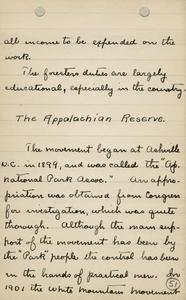 all income to be expended on the
work.
The foresters duties are largely
educational, especially in the country.
The Appalachian Reserve.
The movement began at Asheville
N.C. in 1899, and was called the "Ap.
national Park Assoc." An appro-
priation was obtained from Congress
for investigation, which was quite
thorough. Although the main sup-
port of the movement has been by
the "Park" people the control has been
in the hands of practical men. In
1901 the White Mountain movement
51